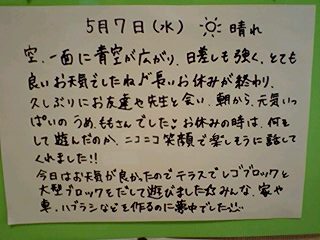 5月7日(水) 晴れ
空、一面に青空が広がり、日差しも強く、とても
良いお天気でしたね♪長いお休みが終わり、
久しぶりにお友達や先生と会い、朝から、元気いっ
ぱいのうめ、ももさんでした♪お休みの時は、何を
して遊んだのか、ニコニコ笑顔で楽しそうに話して
くれました!!
今日はお天気が良かったのでテラスでレゴブロックと
大型ブロックをだして遊びました☆みんな、家や
車、ハブラシなどを作るのに夢中でした